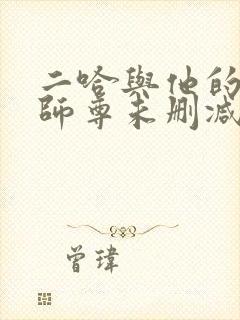 二哈與他的
師尊未刪減
曾瑋